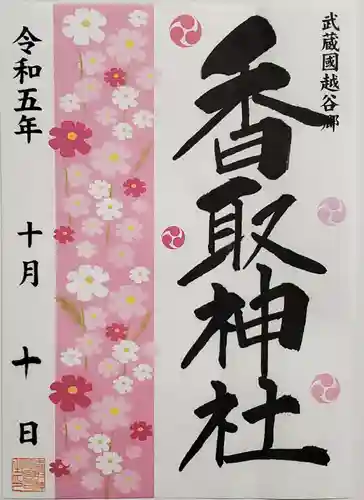 武蔵國越谷郷
香取神社
令和五年 十月 十日